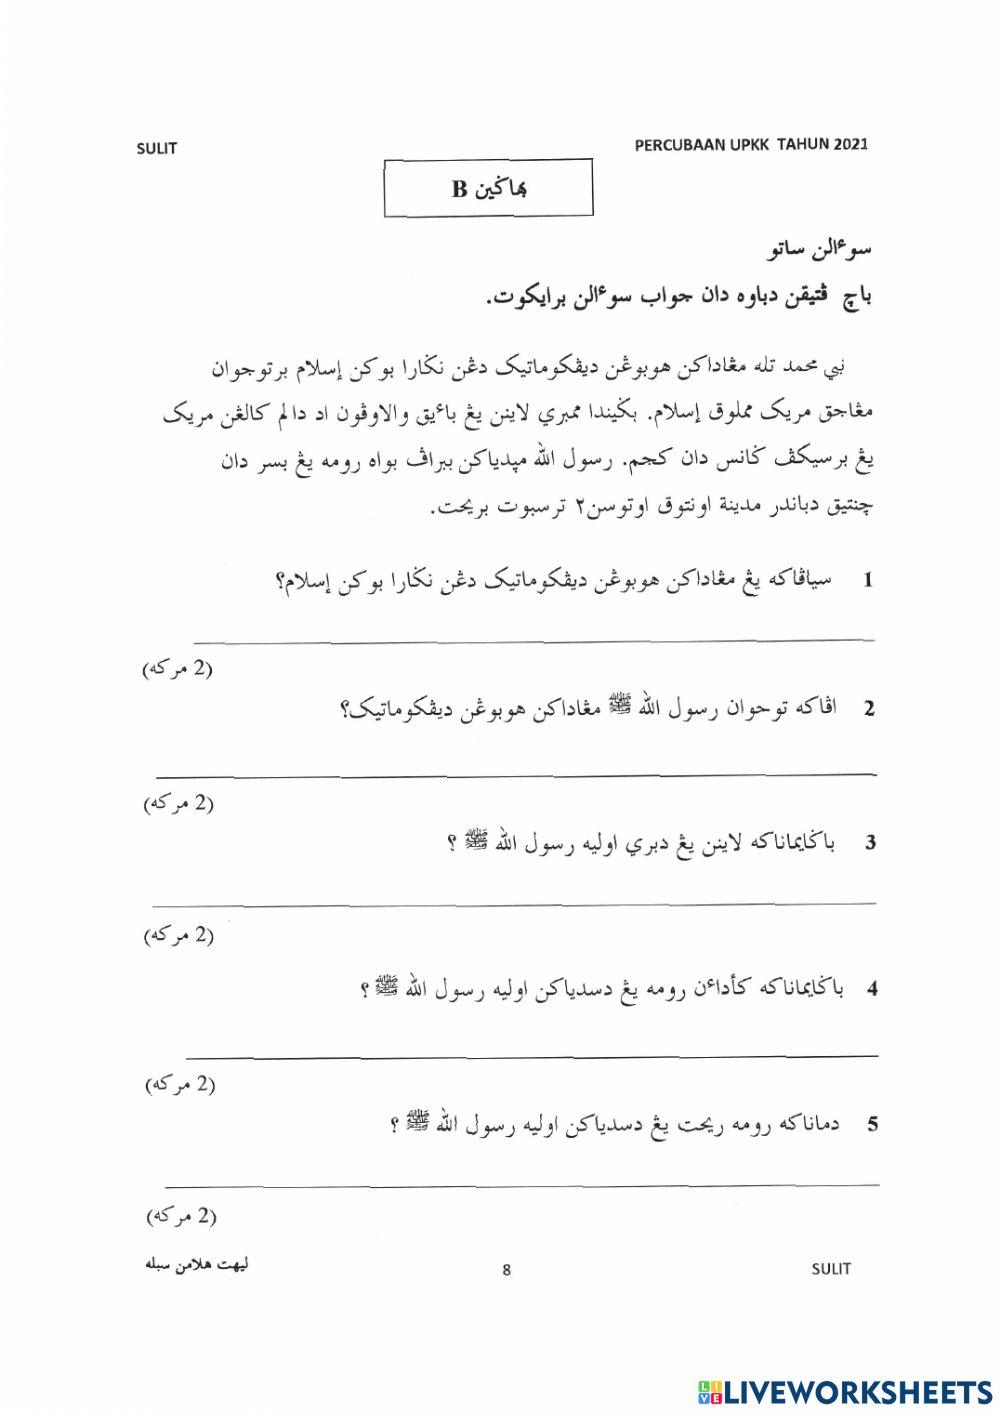 SULIT
PERCUBAAN UPKK TAHUN 2021
بهاݢين B
سوءالن ساتو
باچ ڤتيقن دباوه دان جواب سوءالن برايکوت.
نبي محمد تله مڠاداکن هوبوڠن ديڤکوماتيک دڠن نݢارا بوکن إسلام برتوجوان
مڠاجق مريک مملوق إسلام. بݢيندا ممبري لاينن يڠ باءيق والاوڤون اد دالم کالڠن مريک
يڠ برسيکڤ ݢانس دان کجم. رسول الله مپدياکن ببراڤ بواه رومه يڠ بسر دان
چنتيق دباندر مدينة اونتوق اوتوسن٢ ترسبوت بريحت.
1 سياڤاکه يڠ مڠاداکن هوبوڠن ديڤکوماتيک دڠن نݢارا بوکن إسلام؟
(2 مرکه)
2 اڤاکه توحوان رسول الله ﷺ مڠاداکن هوبوڠن ديڤکوماتيک؟
(2 مرکه)
3 باݢايماناکه لاينن يڠ دبري اوليه رسول الله ﷺ ؟
(2 مرکه)
4 باݢايماناکه کأداءن رومه يڠ دسدياکن اوليه رسول الله ﷺ ؟
(2 مرکه)
5 دماناکه رومه ريحت يڠ دسدياکن اوليه رسول الله ﷺ ؟
(2 مرکه)
ليهت هلامن سبله
8
SULIT
LIVEWORKSHEETS